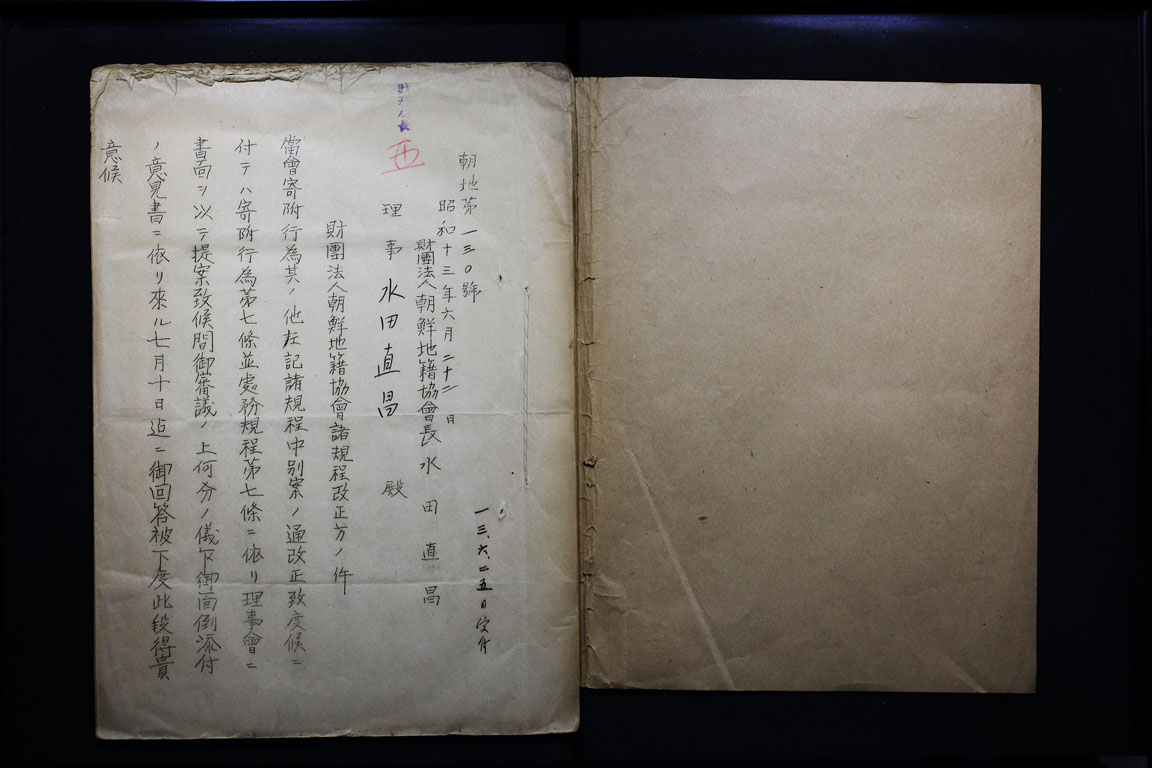 朝地第一三〇號
昭和十三年六月二十二日
財團法人朝鮮地籍協會長水田直昌
理事 水田直昌 殿
財團法人朝鮮地籍協會諸規程改正方ノ件
當會寄附行為其ノ他左記諸規程中別案ノ通改正致度候ニ
付テハ寄附行為第七條並處務規程第七條ニ依リ理事會ニ
書面ヲ以テ提案致候間御審議ノ上何分ノ儀乍御面倒添付
ノ意見書ニ依リ來ル七月十日迄ニ御回答被下度此段得貴
意候
一三、六、二五日受付